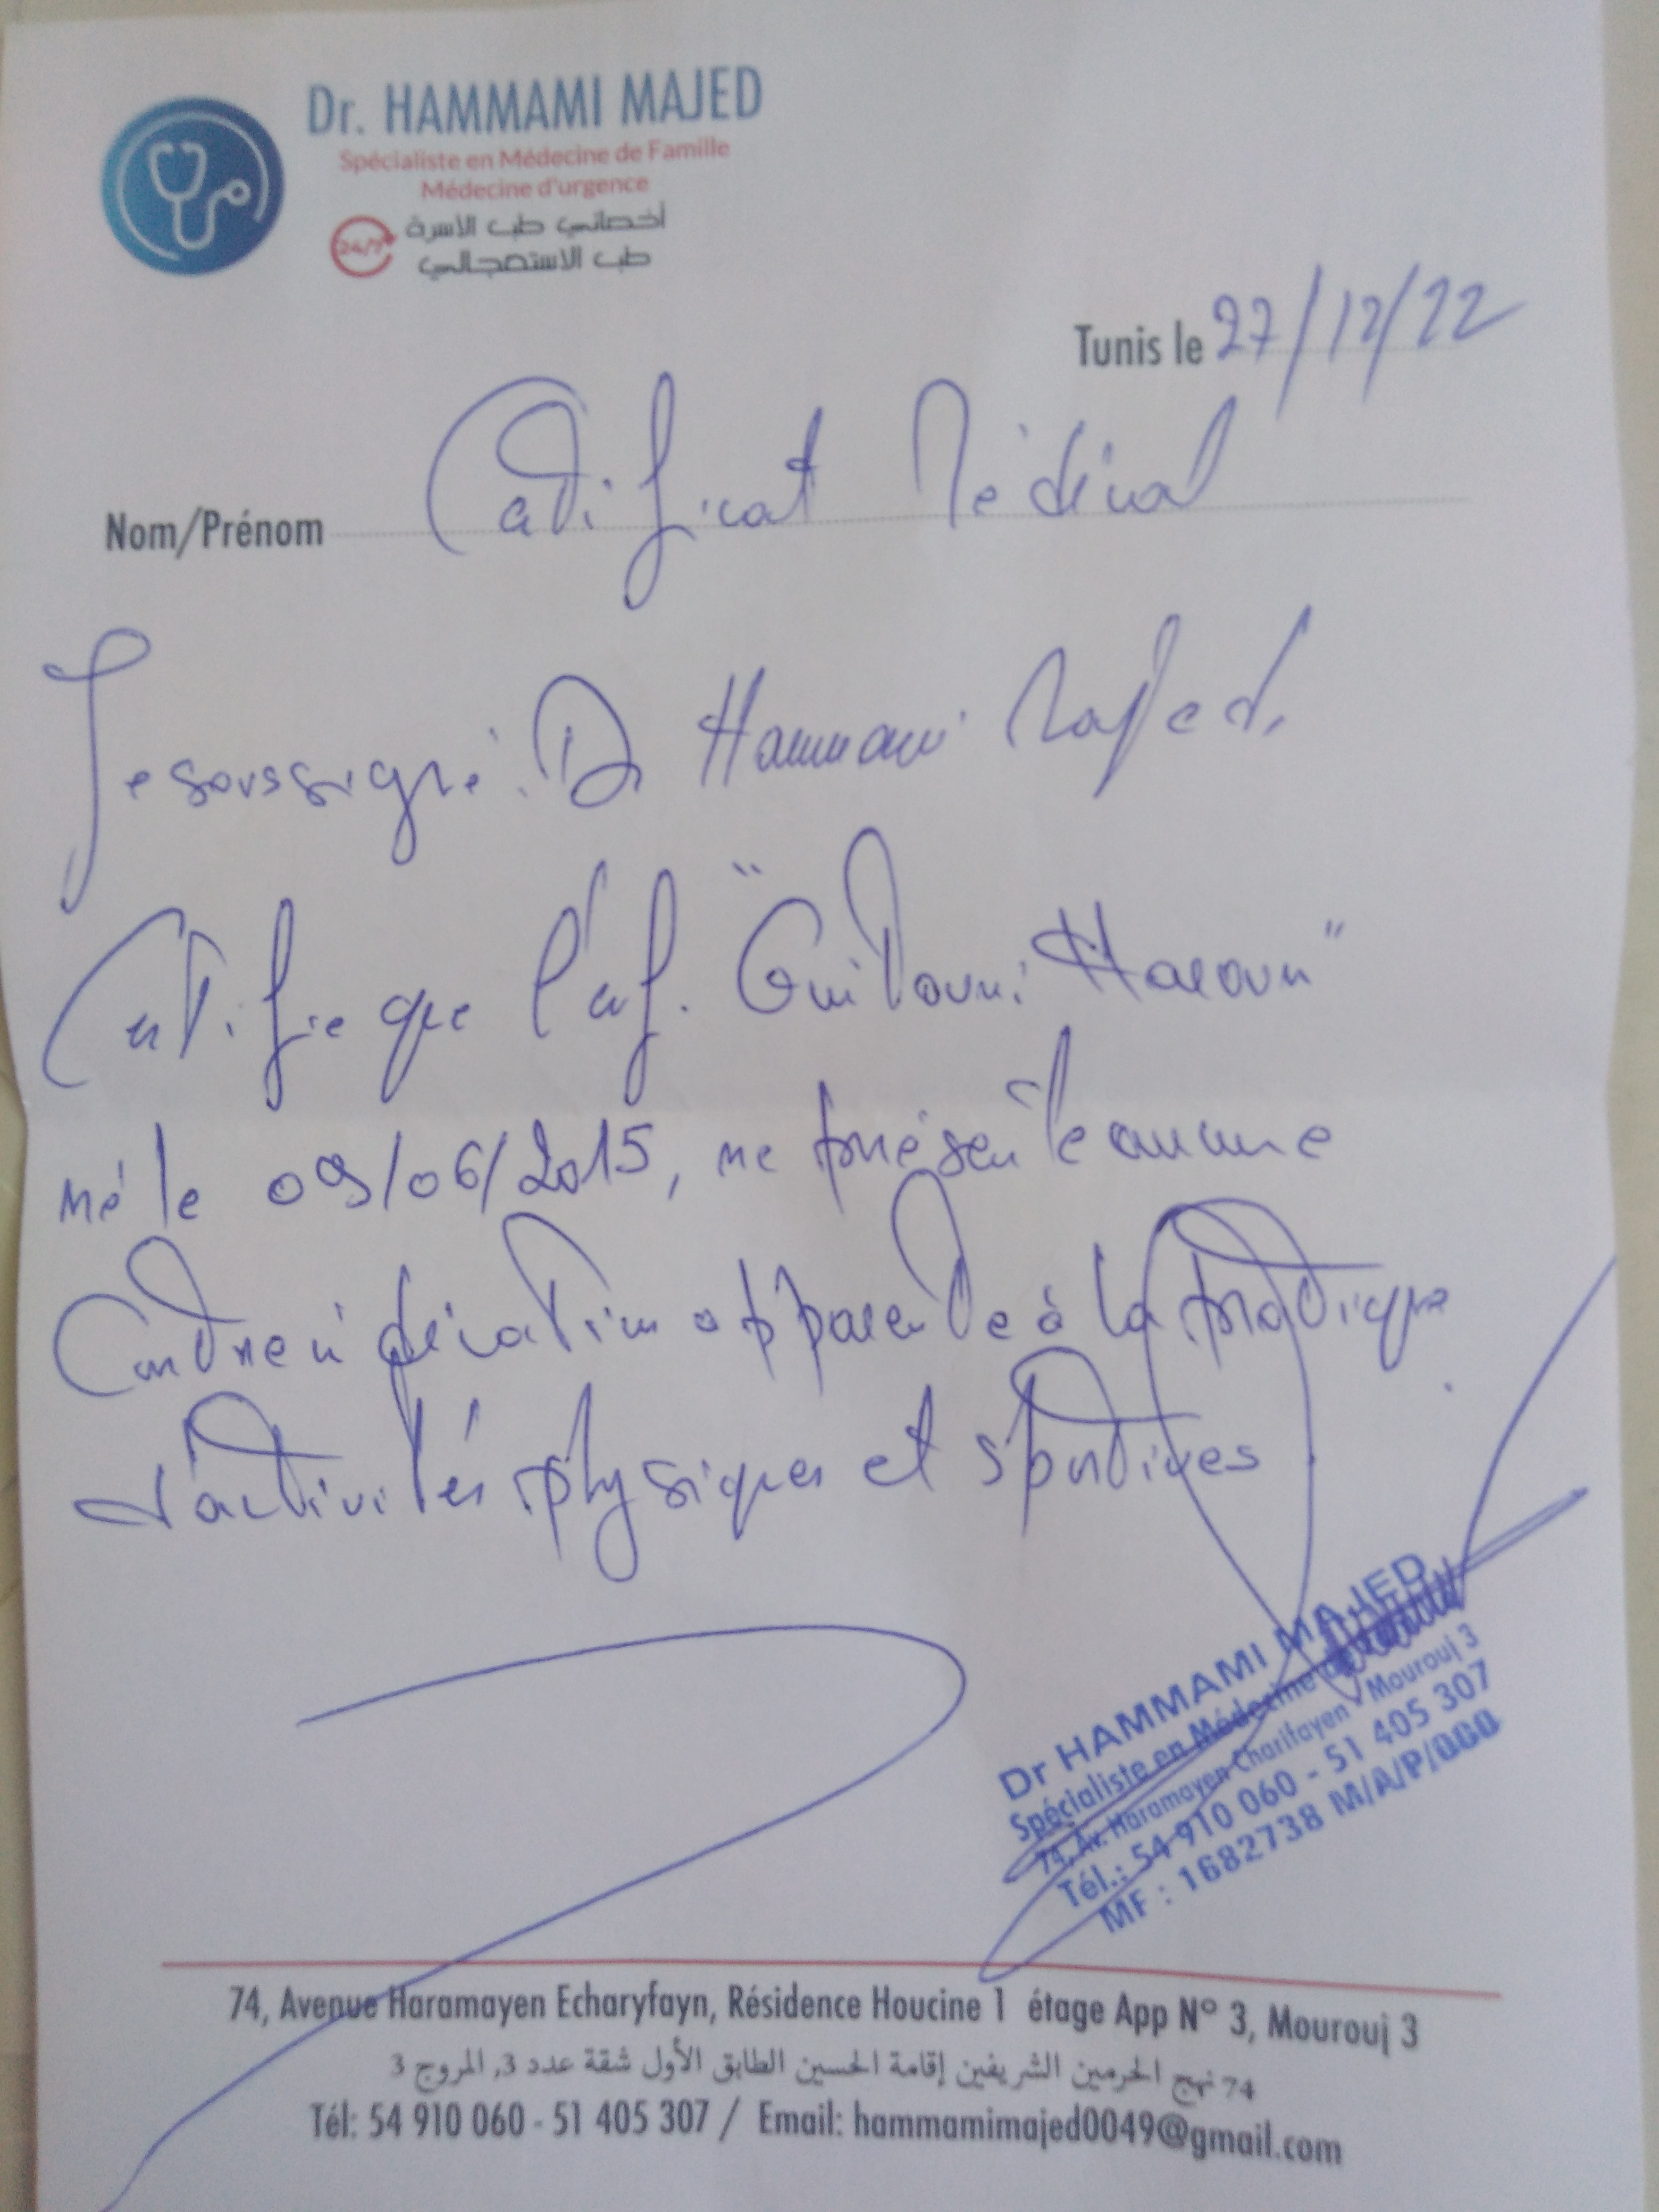 Dr. HAMMAMI MAJED
Spécialiste en Médecine de Famille
Médecine d'urgence
أخصائي طب الأسرة
24/7
طب الاستعجالي
Tunis le 27/12/22
Nom/Prénom
Certificat Médical
Je soussigné. Dr Hammami Majed,
Certifie que l'enf. "Guitouni Haroun"
né le 09/06/2015, ne présente aucune
Contre indication apparente à la pratique
d'activités physiques et sportives
Dr HAMMAMI MAJED
Spécialiste en Médecine de Famille
74, Av. Haramayen Charifayen - Mourouj 3
Tél.: 54 910 060 - 51 405 307
MF : 1682738 M/A/P/000
74, Avenue Haramayen Echaryfayn, Résidence Houcine 1 étage App N° 3, Mourouj 3
74 نهج الحرمين الشريفين إقامة الحسين الطابق الأول شقة عدد 3, المروج 3
Tél: 54 910 060 - 51 405 307 / Email: hammamimajed0049@gmail.com